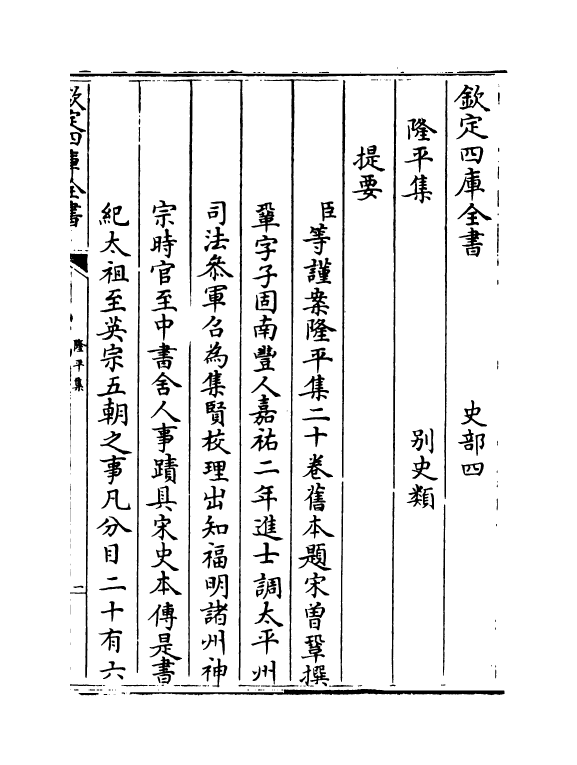 欽定四庫全書　史部四
隆平集　別史類
提要
臣等謹案隆平集二十卷舊本題宋曽鞏撰
鞏字子固南豐人嘉祐二年進士調太平州
司法叅軍召為集賢校理出知福明諸州神
宗時官至中書舍人事蹟具宋史本傳是書
紀太祖至英宗五朝之事凡分目二十有六
欽定四庫全書
隆平集